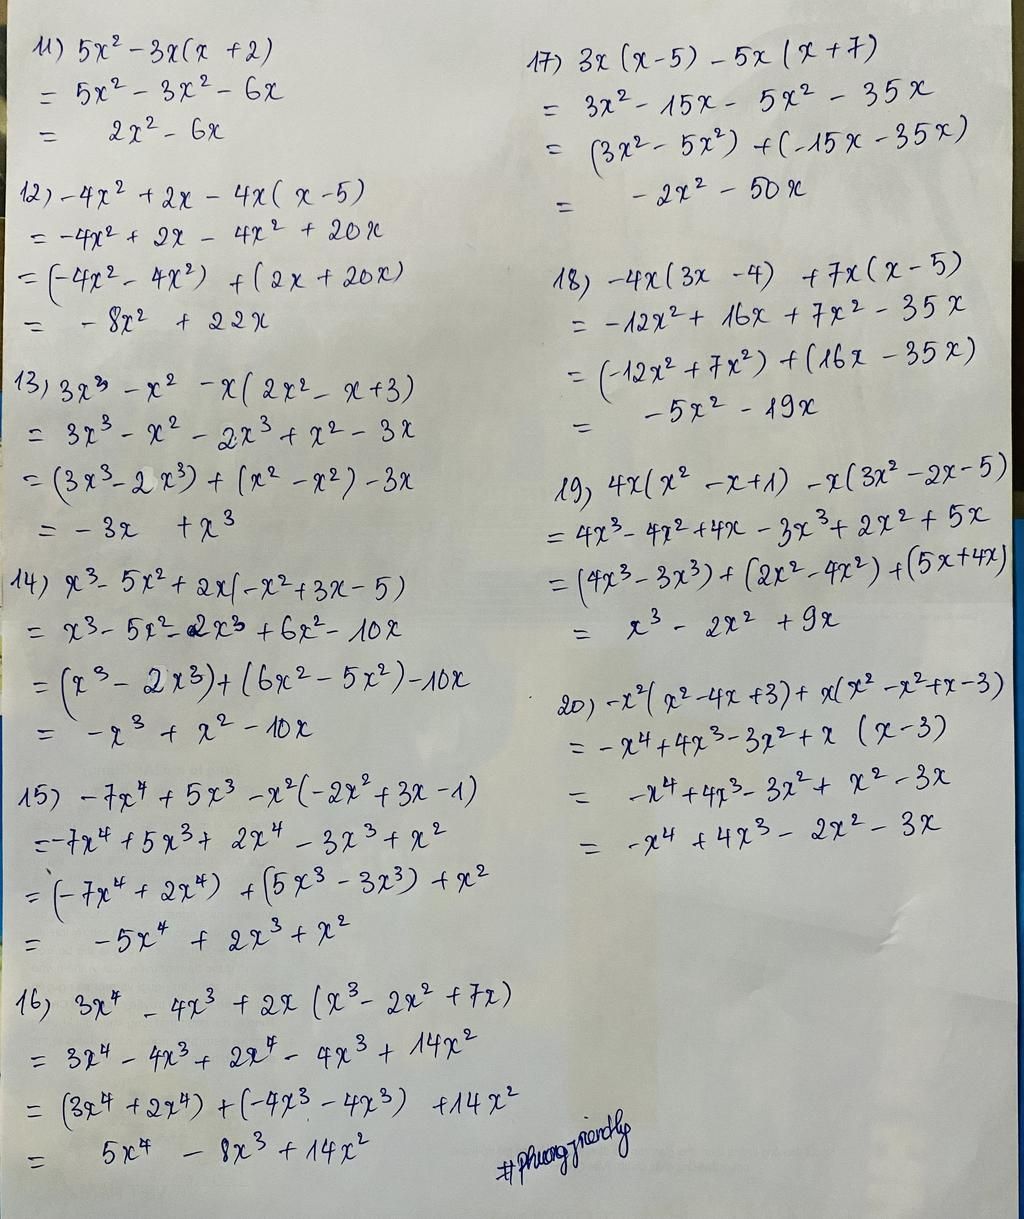 11) 5x² - 3x(x + 2)
= 5x² - 3x² - 6x
= 2x² - 6x
12) -4x² + 2x - 4x( x - 5)
= -4x² + 2x - 4x² + 20x
= (-4x² - 4x²) + (2x + 20x)
= - 8x² + 22x
13) 3x³ - x² - x( 2x² - x + 3)
= 3x³ - x² - 2x³ + x² - 3x
= (3x³ - 2x³) + (x² - x²) - 3x
= - 3x + x³
14) x³ - 5x² + 2x(-x² + 3x - 5)
= x³ - 5x² - 2x³ + 6x² - 10x
= (x³ - 2x³) + (6x² - 5x²) - 10x
= -x³ + x² - 10x
15) -7x⁴ + 5x³ - x²(-2x² + 3x - 1)
= -7x⁴ + 5x³ + 2x⁴ - 3x³ + x²
= (-7x⁴ + 2x⁴) + (5x³ - 3x³) + x²
= -5x⁴ + 2x³ + x²
16) 3x⁴ - 4x³ + 2x (x³ - 2x² + 7x)
= 3x⁴ - 4x³ + 2x⁴ - 4x³ + 14x²
= (3x⁴ + 2x⁴) + (-4x³ - 4x³) + 14x²
= 5x⁴ - 8x³ + 14x²
17) 3x (x - 5) - 5x (x + 7)
= 3x² - 15x - 5x² - 35x
= (3x² - 5x²) + (-15x - 35x)
= - 2x² - 50x
18) -4x(3x - 4) + 7x(x - 5)
= -12x² + 16x + 7x² - 35x
= (-12x² + 7x²) + (16x - 35x)
= -5x² - 19x
19) 4x(x² - x + 1) - x(3x² - 2x - 5)
= 4x³ - 4x² + 4x - 3x³ + 2x² + 5x
= (4x³ - 3x³) + (2x² - 4x²) + (5x + 4x)
= x³ - 2x² + 9x
20) -x²( x² - 4x + 3) + x(x² - x² + x - 3)
= -x⁴ + 4x³ - 3x² + x (x - 3)
= -x⁴ + 4x³ - 3x² + x² - 3x
= -x⁴ + 4x³ - 2x² - 3x
#phuongfriendly